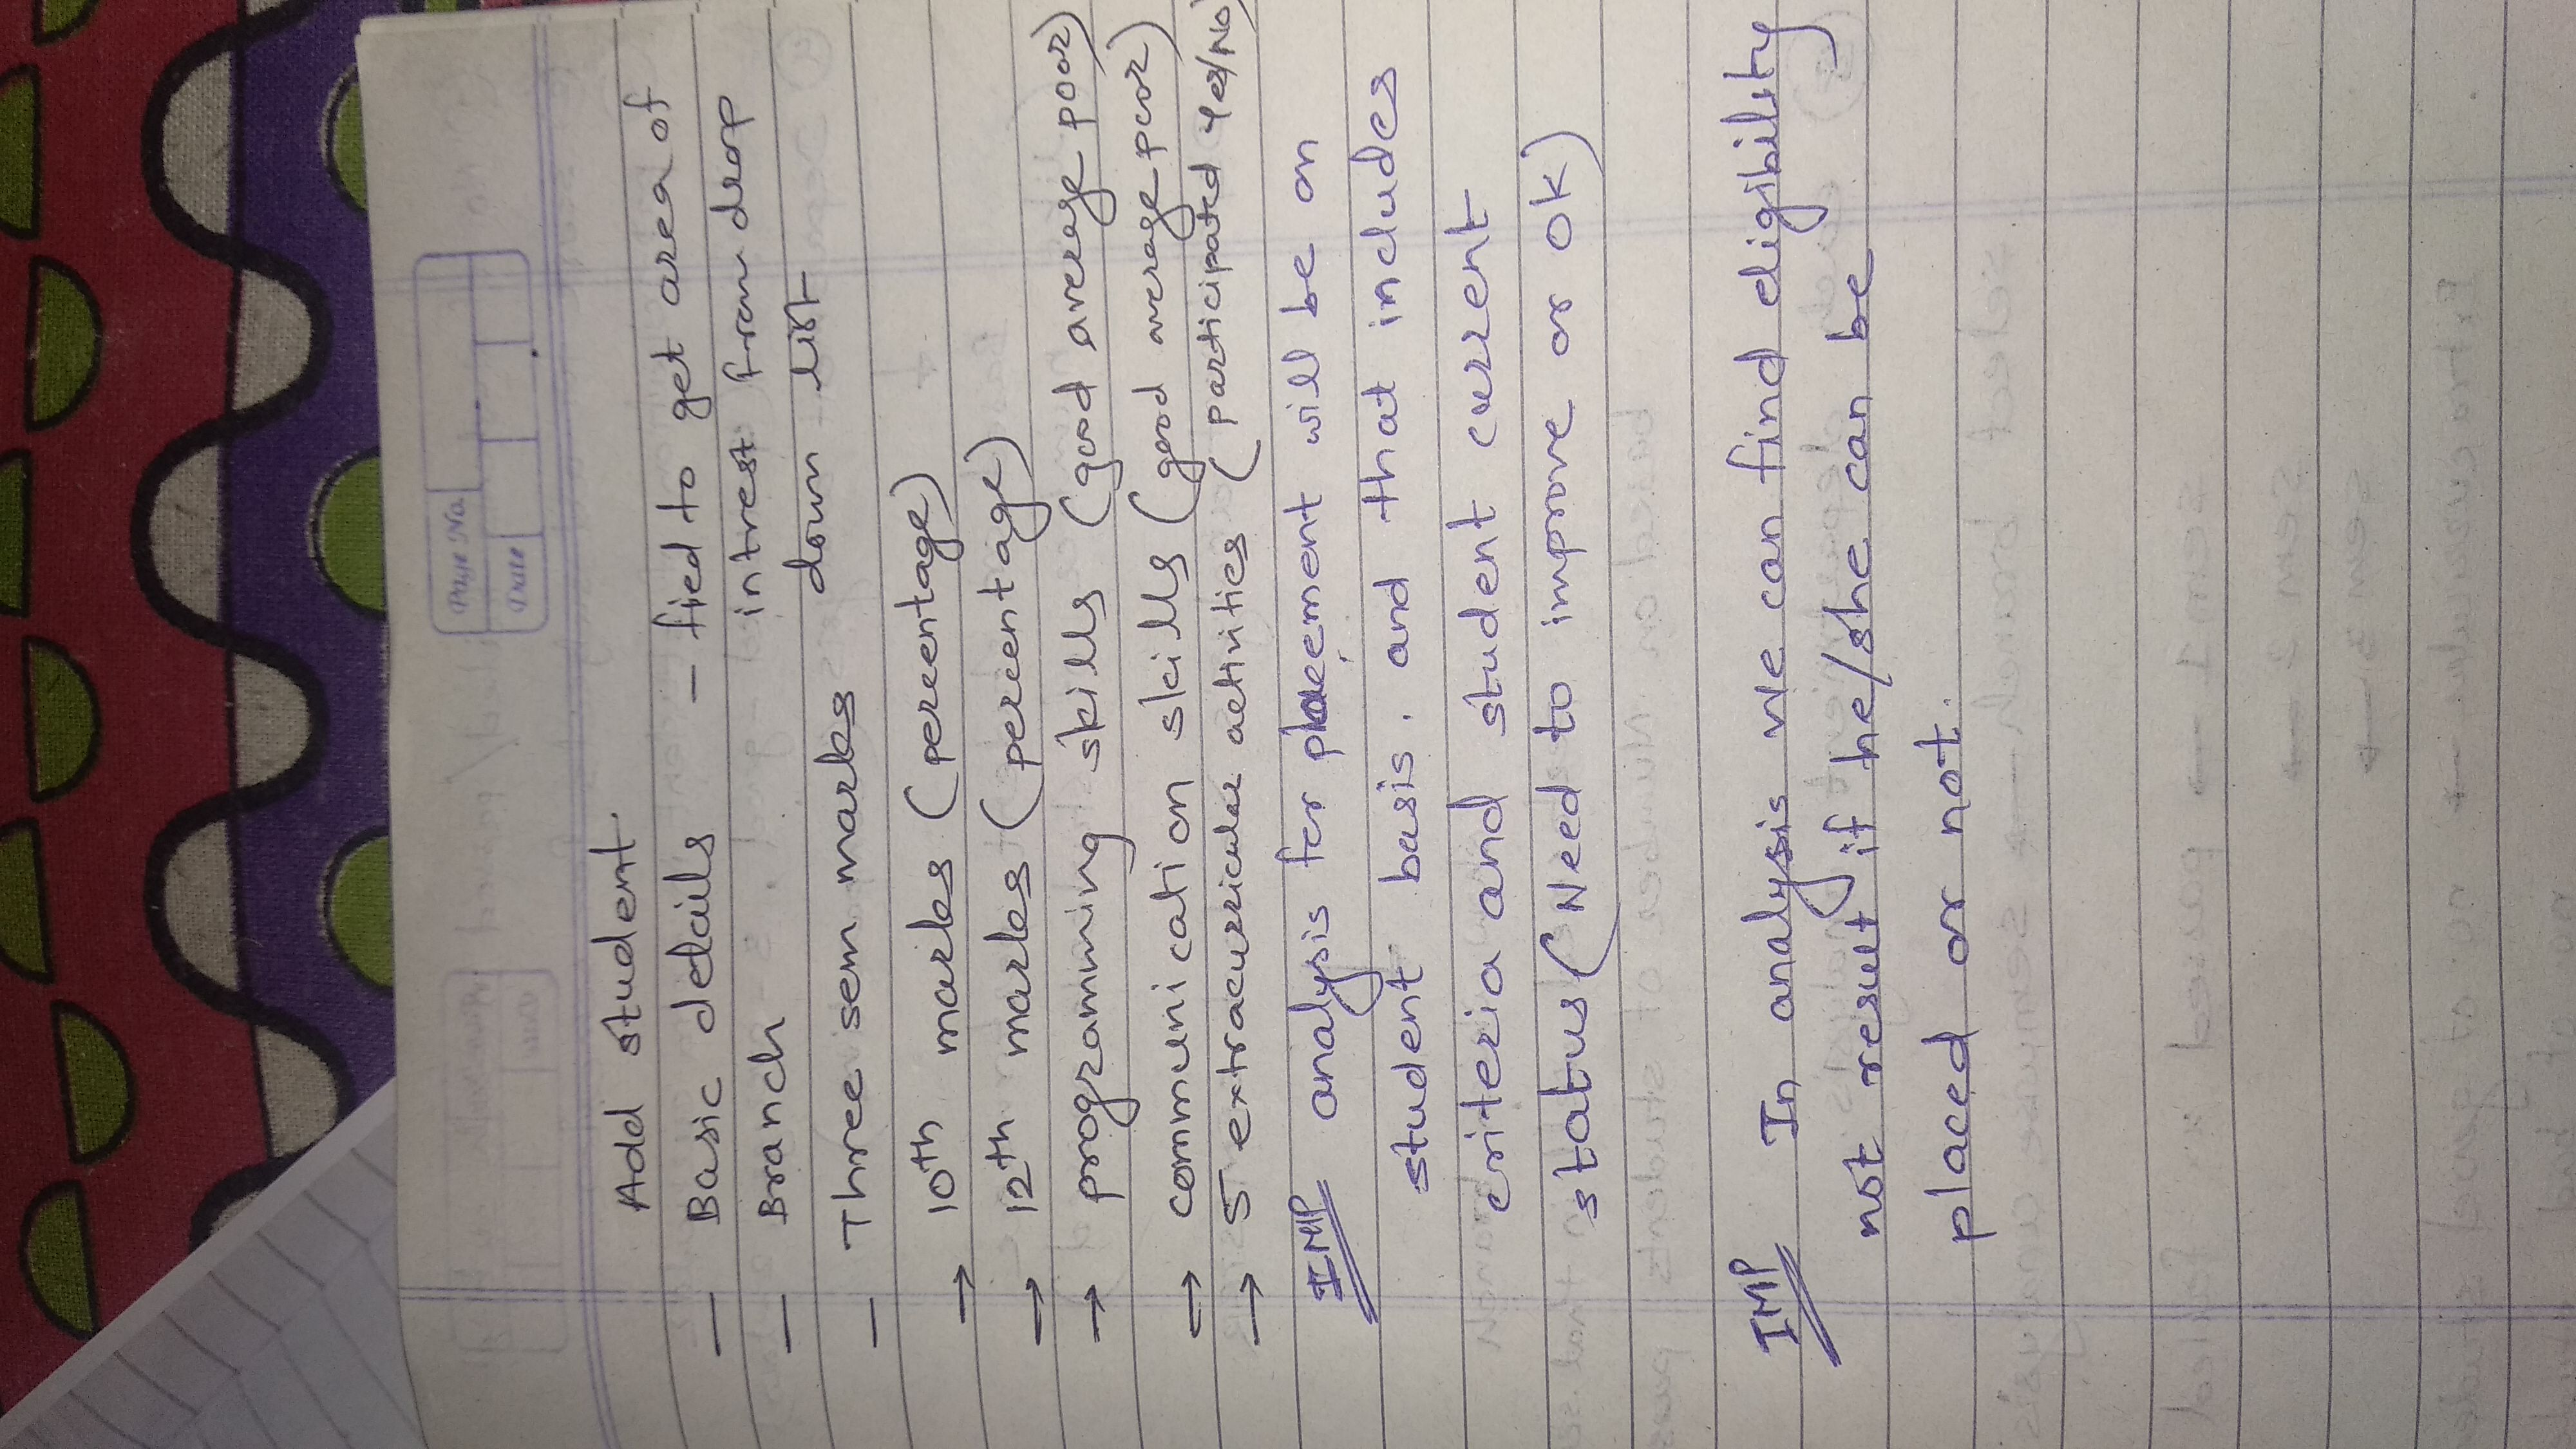 Page No.
Date
Add student.
— Basic details
— Branch
— Three sem marks
— fied to get area of
intrest from drop
down list
→ 10th marks (percentage)
→ 12th marks (percentage)
→ programming skills (good average poor)
→ communication skills (good average poor)
→ 5 extracurricular activities (participated Yes/No)
IMP analysis for placement will be on
student basis. and that includes
criteria and student current
status (Need to improve or OK)
IMP In analysis we can find eligibility
not result if he/she can be
placed or not.